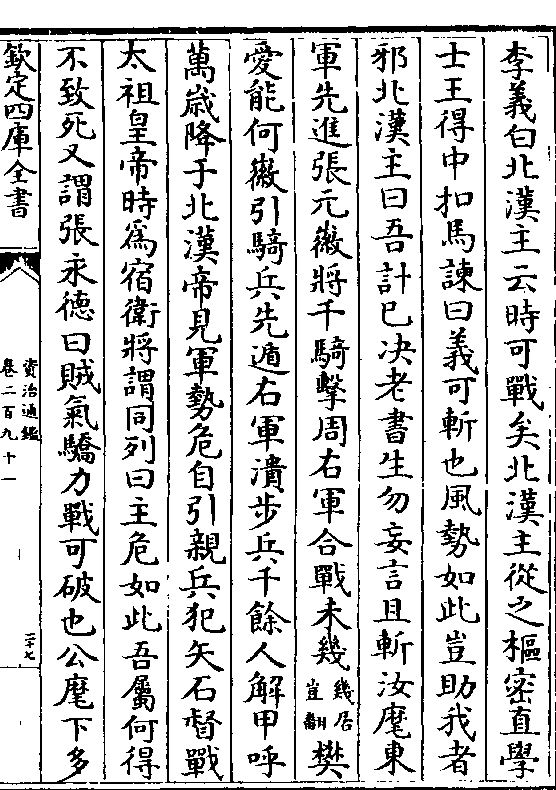 李義白北漢主云時可戰矣北漢主從之樞密直學
士王得中扣馬諫曰義可斬也風勢如此豈助我者
邪北漢主曰吾計已決老書生勿妄言且斬汝麾東
軍先進張元徽將千騎擊周右軍合戰未幾幾居豈翻樊
愛能何徽引騎兵先遁右軍潰步兵千餘人解甲呼
萬歲降于北漢帝見軍勢危自引親兵犯矢石督戰
太祖皇帝時爲宿衛將謂同列曰主危如此吾屬何得
不致死又謂張永德曰賊氣驕力戰可破也公麾下多
欽定四庫全書
資治通鑑
卷二百九十一
二十七